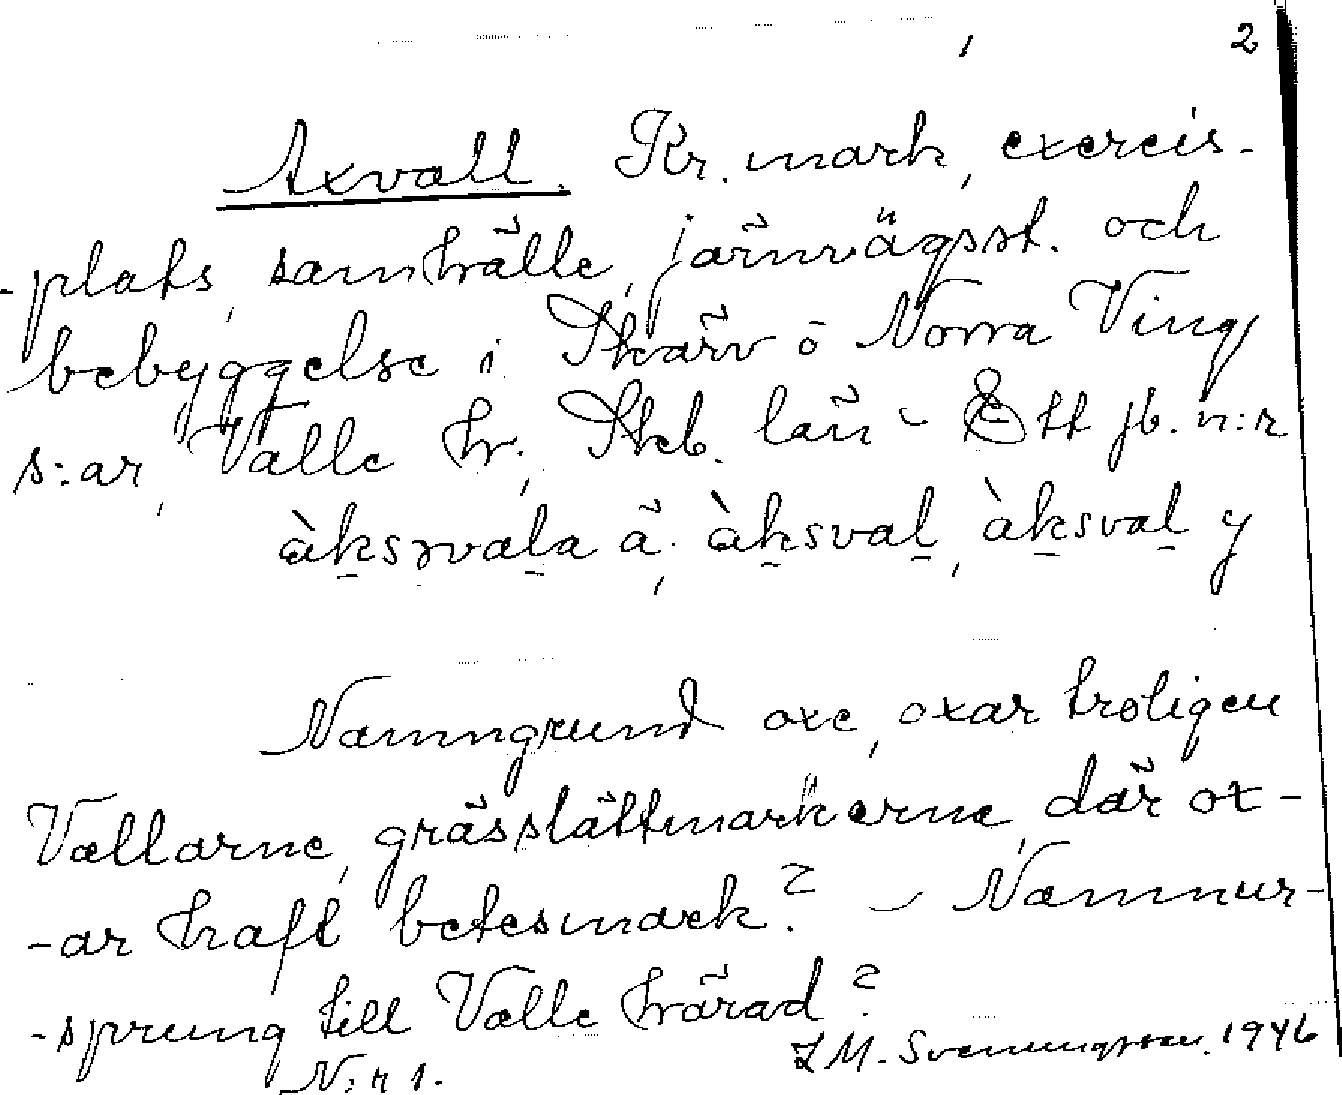 1 2
Axvall. Kr. mark, exercis-
-plats, samhälle, järnvägsst. och
bebyggelse i Skärv o Norra Ving
s:ar, Valle hr, Skb. län - Ett jb. n:r
àksvala ä, àksval, àksval y
Namngrund oxe, oxar troligen
Vallarne, grässlättmarkerne, där ox-
-ar haft betesmark? - Namnur-
-sprung till Valle härad?
N:r 1. M. Svenungsson. 1946